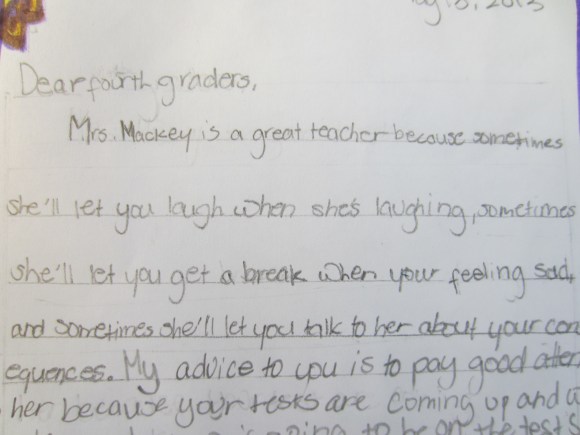 2013
Dear fourth graders,
Mrs. Mackey is a great teacher because sometimes
she'll let you laugh when she's laughing, sometimes
she'll let you get a break when your feeling sad,
and sometimes she'll let you talk to her about your con
equences. My advice to you is to pay good atten
her because your tests are coming up and
going to be on the tests